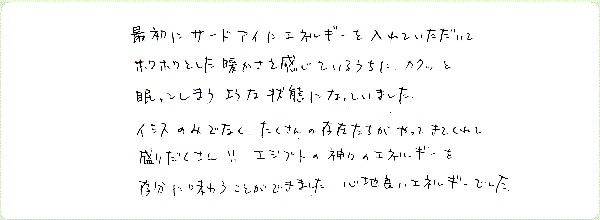 最初に サードアイに エネルギーを 入れていただいて
ホワホワとした 暖かさを 感じているうちに、カクッと
眠ってしまう ような 状態に なっていました。
イシスのみでなく たくさんの 存在たちが やってきてくれて
盛りだくさん!! エジプトの 神々の エネルギーを
存分に 味わうことができました 心地良い エネルギーでした